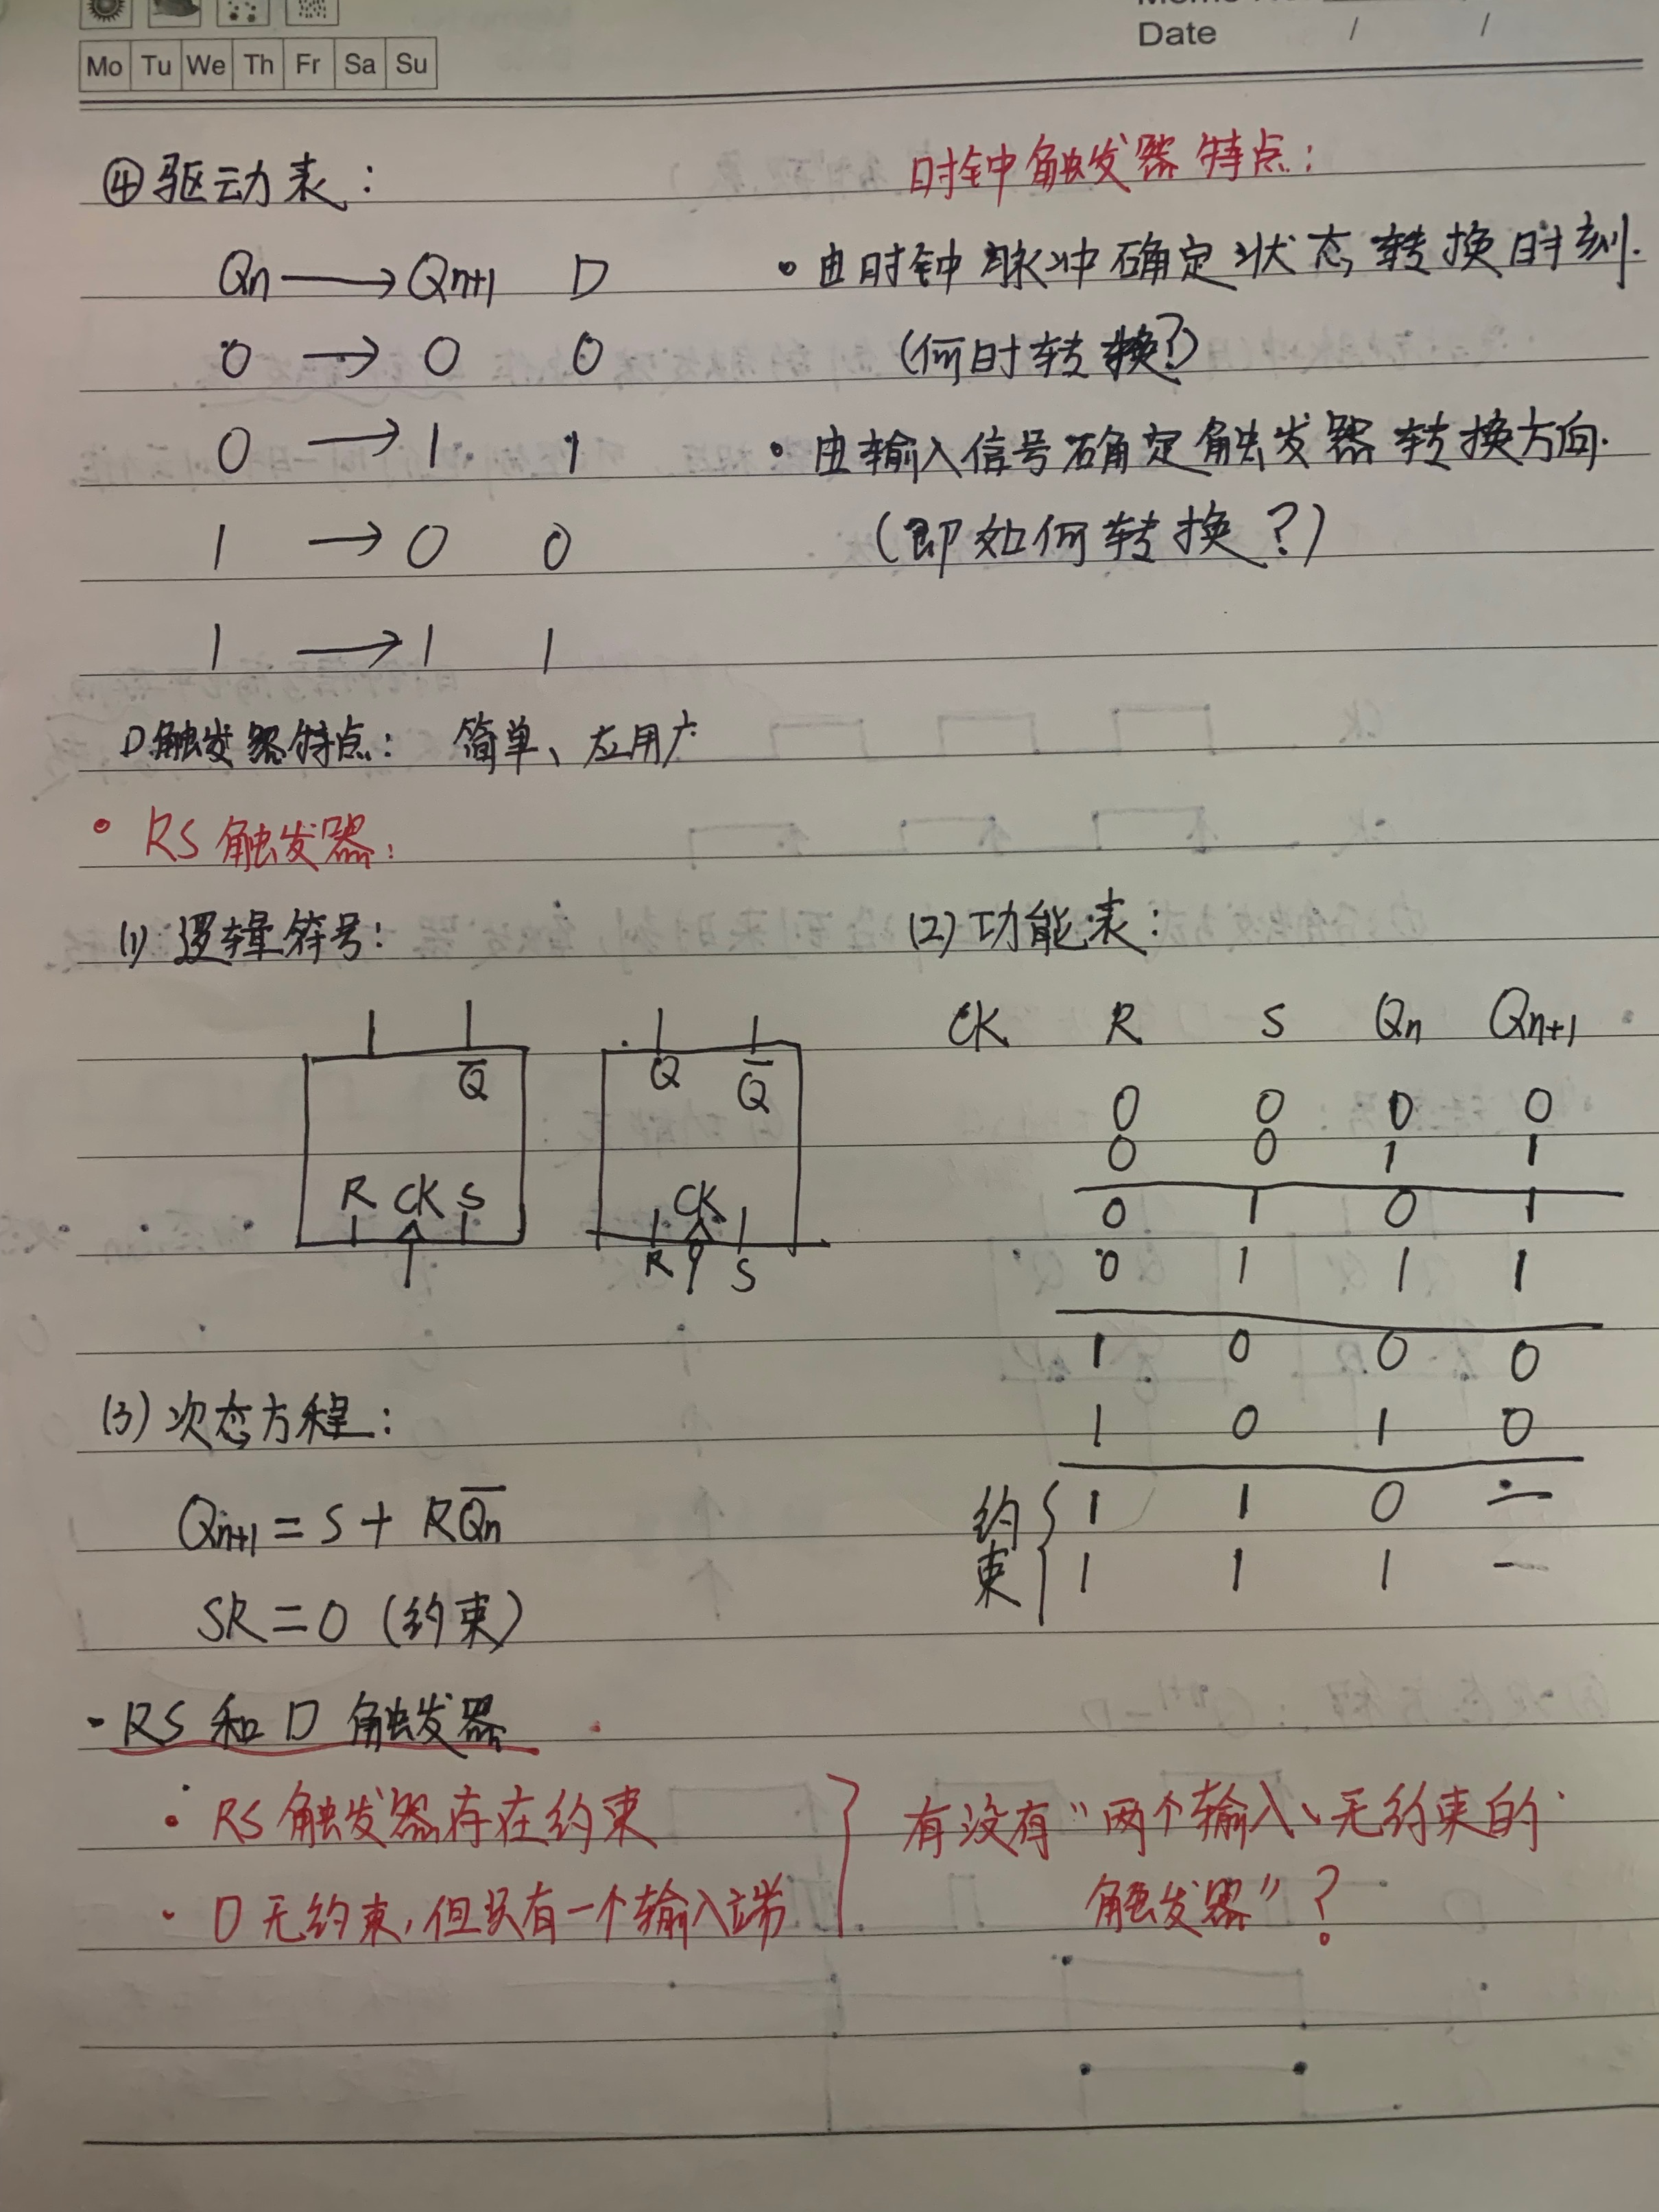 Date / /
Mo Tu We Th Fr Sa Su
④驱动表:
Qn → Qn+1 D
0 → 0 0
0 → 1 1
1 → 0 0
1 → 1 1
时钟触发器特点:
• 由时钟脉冲确定状态转换时刻.
(何时转换?)
• 由输入信号确定触发器转换方向.
(即如何转换?)
D触发器特点: 简单、应用广
• RS触发器:
(1) 逻辑符号:
Q̅
R CK S
Q Q̅
CK
R S
(2) 功能表:
CK R S Qn Qn+1
0 0 0 0
0 0 1 1
0 1 0 1
0 1 1 1
1 0 0 0
1 0 1 0
约束 { 1 1 0 —
1 1 1 —
(3) 次态方程:
Qn+1 = S + R\overline{Qn}
SR = 0 (约束)
- RS 和 D 触发器
• RS触发器存在约束
• D无约束,但只有一个输入端
有没有"两个输入、无约束的
触发器"?